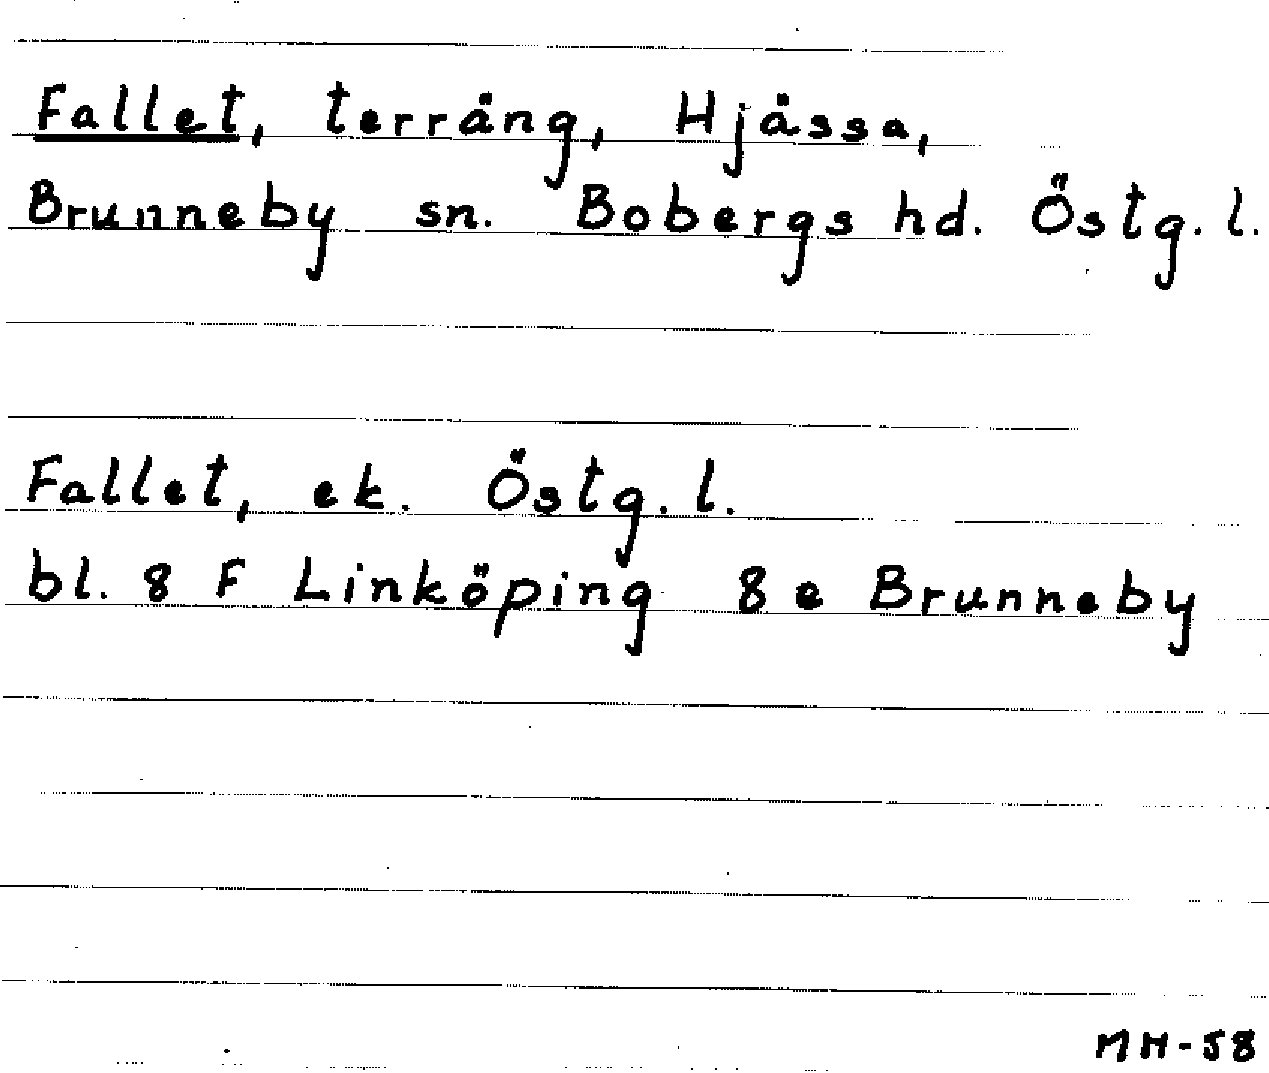 Fallet, terräng, Hjässa,
Brunneby sn. Bobergs hd. Östg. l.
Fallet, ek. Östg. l.
bl. 8 F Linköping 8 e Brunneby
MH-58